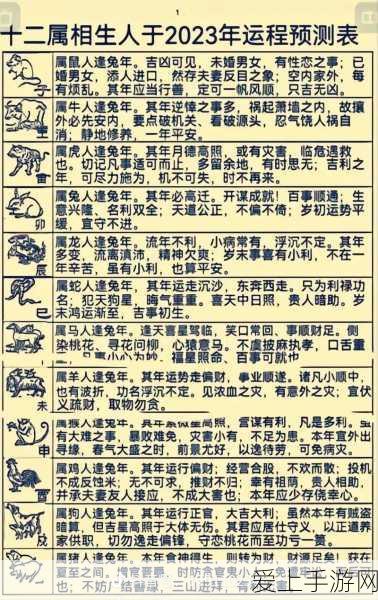 1
十二属相生人于2023年运程预测表
属鼠人逢兔年。吉凶可见，未婚男女，有性恋之事；已
婚男女，添人进口，然存夫妻反目之象；空内家外，每
有烦乱。其年应当行善，定可一帆风顺，只吉无凶。
子
属牛人逢兔年。其年逆悻之事多，祸起萧墙之内，故攘
外必先安内，要点破机关、看破源头，忍气饶人祸自
消；静地修养，一年平安。
属虎人逢兔年。其年月德高照，或有灾害，临危遇救
也。切记凡事适可而止，多留余地，有时思无；吉利之
年，可尽力施为，机不可失，时不再来。
寅
属兔人逢兔年。其年必高迁。开谋成就！百事顺通；生
意兴隆、名利双全；天道公正，不偏不倚；岁初运势平
缓，宜守不进。
卯
属龙人逢兔年。流年不利，小病常有，浮沉不定。其年
多变，流离滇沛，精神欠爽；岁末事喜有小利，不在一
年辛苦，虽有小利，也算平安。
辰
属蛇人逢兔年。其年运走沉沙，东奔西走。只为利禄功
名；犯天狗星，晦气重重。喜天中日照，贵人暗助。岁
末鸿运渐至，吉事初生。
巳
属马人逢兔年。逢天喜星驾临，笑口常回、事顺财足。侧
染桃花、寻花问柳，心猿意马。不虞披麻执孝，口舌重
凡事小心为妙，福星照命、百事可就也
属羊人逢兔年。其年运势走偏财，事业顺遂。诸凡小顺中，
也有波折，功名浮沉不定。见浓血之灾，有意外之灾；宜伏
义疏财、取物勿贪。
未
营谋有利，凡是多利。虽
有大难之事，暴败难免，灾害小有，不足为患。本年宜外出
寻缘，春气大盛之时，前景尤好，以逸待劳，可免病灾。
申
属鸡人逢兔年。其年运行偏财；经营合股，不欢而散；投机
不成反蚀米；无不可求，推财不归；幸有祖荫，贵人相助，
并承夫妻友人接应，不成大害也；本年应少存侥幸心。
酉
属狗人逢兔年。其年运行正官，大吉大利；虽然本年有贼盗
暗算，但吉星高照于大体无伤。其君应居仕守义，以正道养
家供职，切勿逸走偏锋，守恋桃花而至功亏一篑。
戌
属猪人逢兔年。本年食神得生，则转为财，财源足牟！获在
爱上手游网